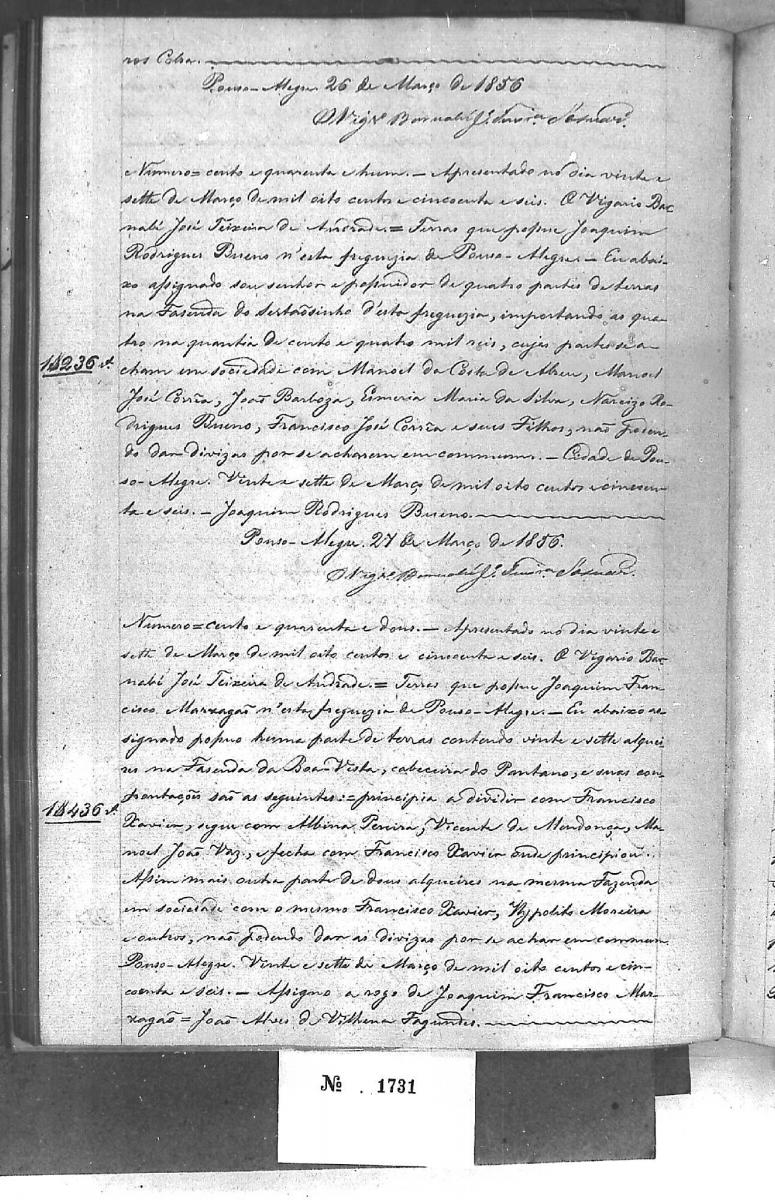 Pouso-Alegre 26 de Março de 1856
O Vigr.º Barnabé J.e Teixr.a d'Andrade.
Numero = cento e quarenta e hum. — Apresentado no dia vinte e
sette de Março de mil oito centos e cincoenta e seis. O Vigario Bar-
nabé José Teixeira de Andrade. = Terras que possue Joaquim
Rodrigues Bueno n'esta freguezia de Pouso-Alegre. — Eu abai-
xo assignado sou senhor e possuidor de quatro partes de terras
na Fasenda do Sertãosinho d'esta freguezia, importando as qua-
tro na quantia de cento e quatro mil reis, cujas partes se a-
14236 r.
cham em sociedade com Manoel da Costa de Abreu, Manoel
José Corrêa, João Barboza, Esmeria Maria da Silva, Narcizo Ro-
drigues Bueno, Francisco José Corrêa e seus Filhos, não poden-
do dar divizas por se acharem em commum. — Cidade de Pou-
so-Alegre. Vinte e sette de Março de mil oito centos e cincoen-
ta e seis. — Joaquim Rodrigues Bueno.
Pouso-Alegre. 27 de Março de 1856.
O Vigr.º Barnabé J.e Teixr.a d'Andrade.
Numero = cento e quarenta e dous. — Apresentado no dia vinte e
sette de Março de mil oito centos e cincoenta e seis. O Vigario Bar-
nabé José Teixeira de Andrade. = Terras que possue Joaquim Fran-
cisco Marzagão n'esta freguezia de Pouso-Alegre. — Eu abaixo as-
signado possuo huma parte de terras contendo vinte e sette alquei-
res na Fasenda da Boa-Vista, cabeceira do Pantano, e suas con-
frontações são as seguintes: = principia a dividir com Francisco
14436 r.
Xavier, segue com Albina Pereira, Vicente de Mendonça, Ma-
noel João Vaz, e fecha com Francisco Xavier onde principiou.
Assim mais outra parte de dous alqueires na mesma Fazenda
em sociedade com o mesmo Francisco Xavier, Hyppolito Moreira
e outros, não podendo dar as divizas por se achar em commum.
Pouso-Alegre. Vinte e sette de Março de mil oito centos e cin-
coenta e seis. — Assigno a rogo de Joaquim Francisco Mar-
zagão = João Alves de Vilhena Fagundes.
Nº . 1731